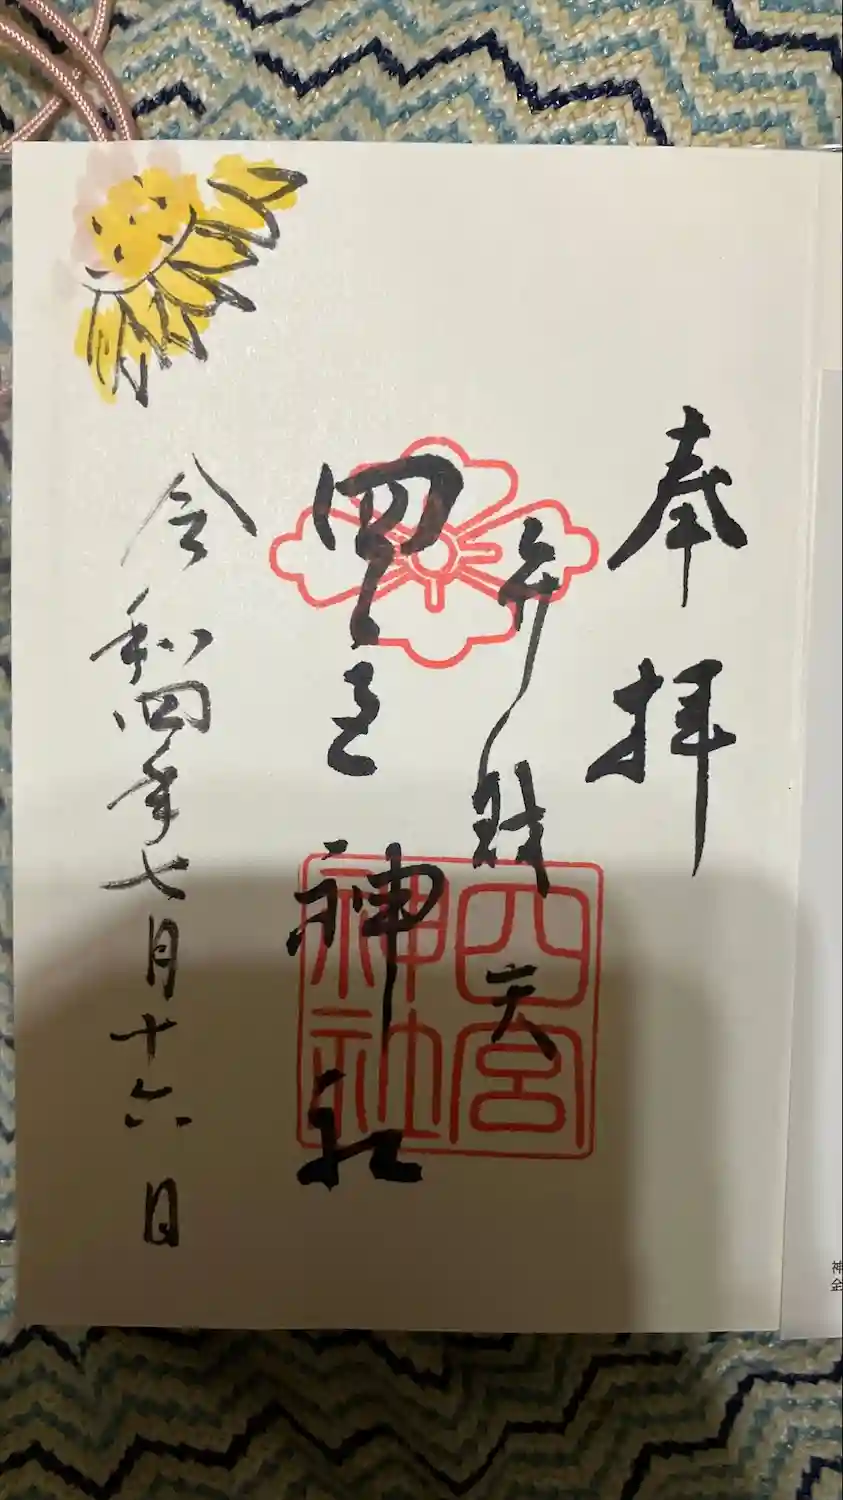 奉拝
弁財天
四宮神社
令和四年七月十六日
四宮
神社
神